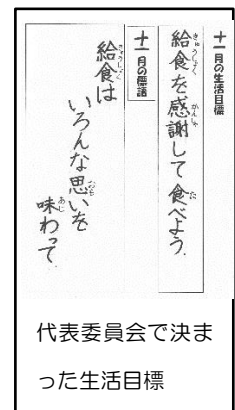 十一月の生活目標
給食を感謝して食べよう
十一月の標語
給食は
いろんな思いを
味わって
代表委員会で決ま
った生活目標